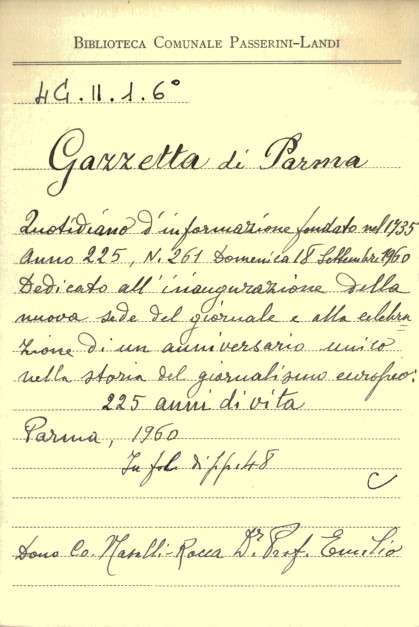 BIBLIOTECA COMUNALE PASSERINI-LANDI
4G.II.1.6°
Gazzetta di Parma
Quotidiano d'informazione fondato nel 1735
Anno 225, N. 261 Domenica 18 Settembre 1960
Dedicato all'inaugurazione della
nuova sede del giornale e alla celebra
zione di un anniversario unico
nella storia del giornalismo europeo:
225 anni di vita
Parma, 1960
In fol. di pp. 48
C
Dono Co. Nasalli-Rocca Dr. Prof. Emilio